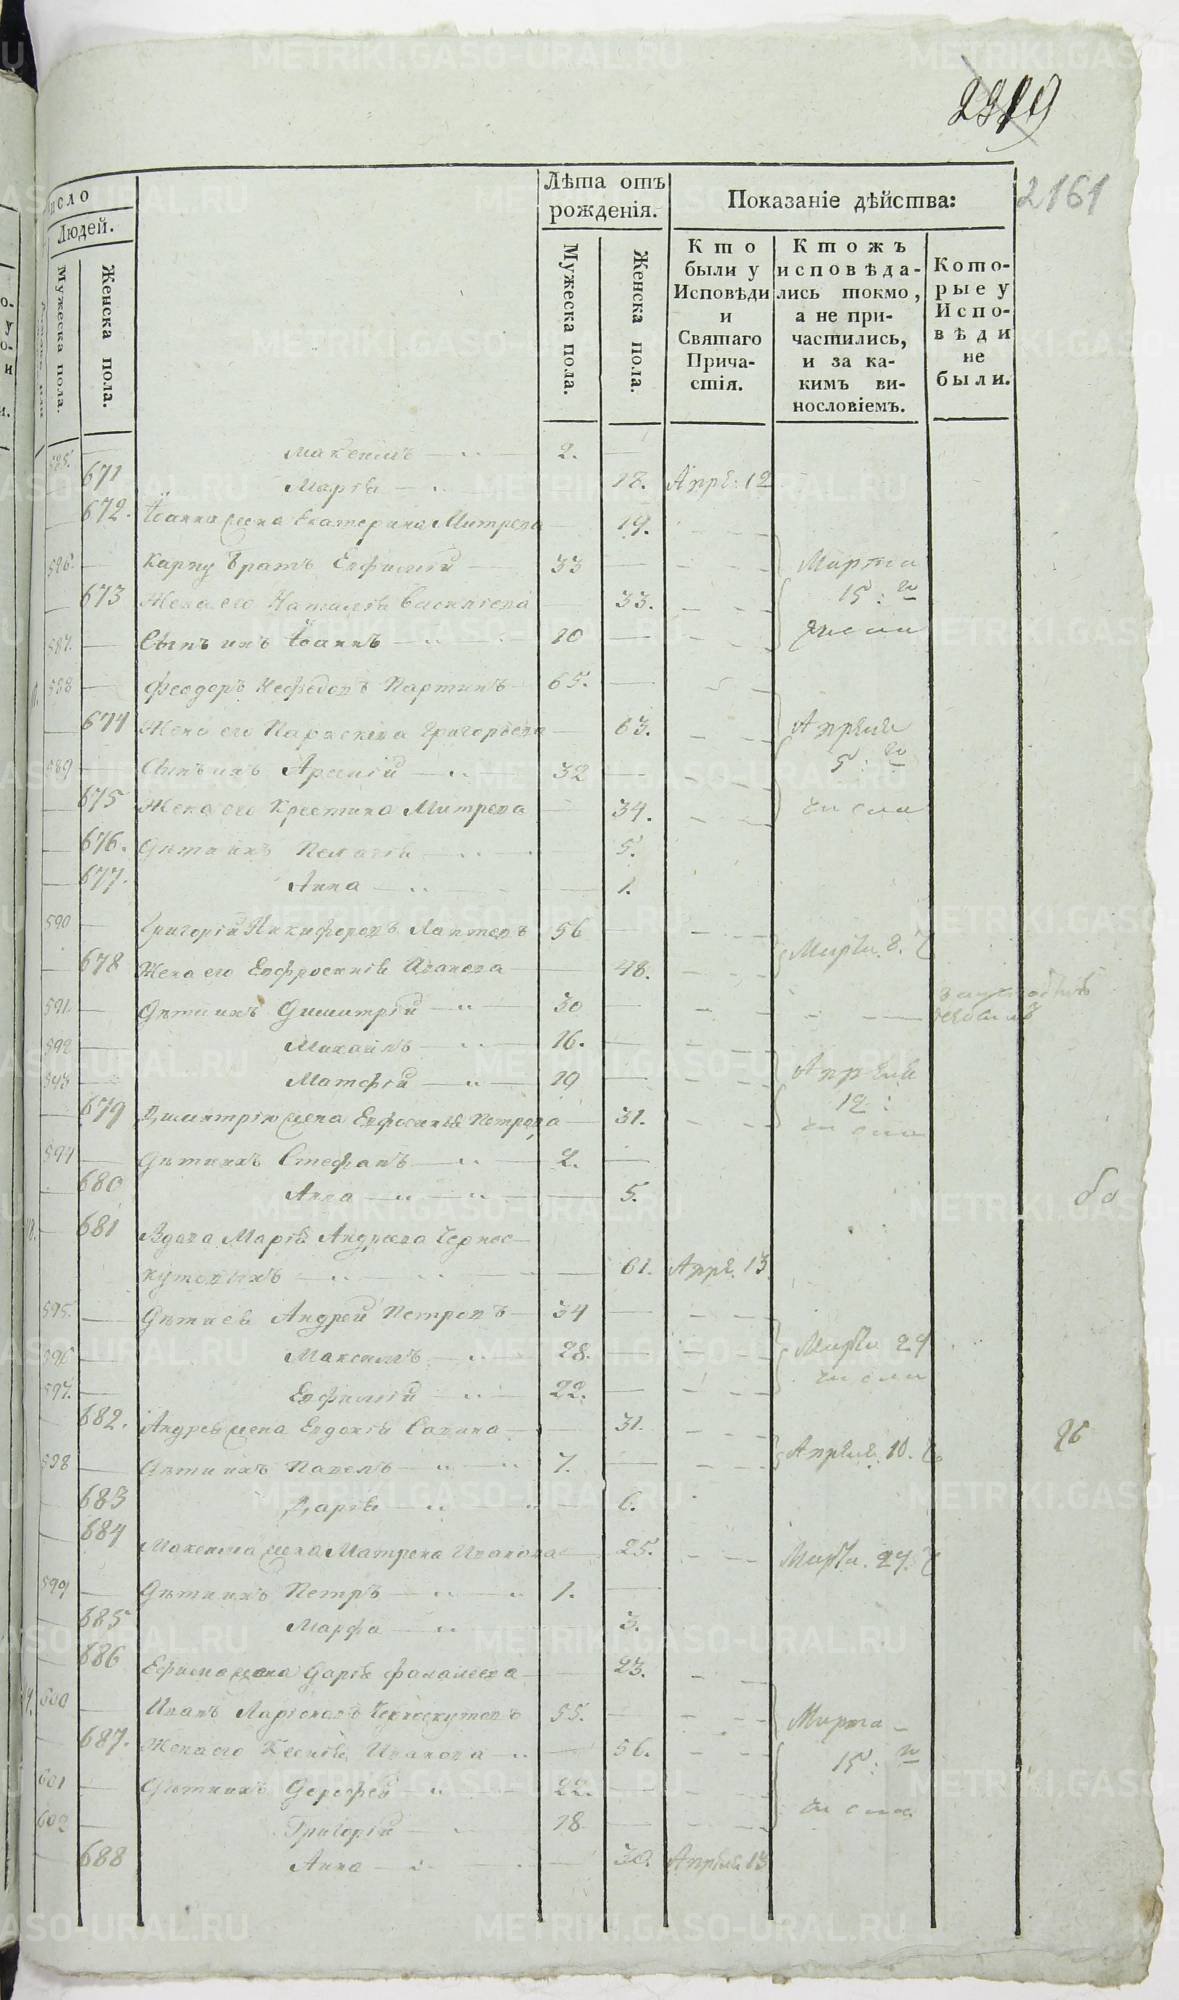 2219
2161
исло
Людей.
Мужеска пола.
Женска пола.
Лѣта отъ рожденія.
Мужеска пола.
Женска пола.
Показаніе дѣйства:
Кто были у Исповѣди и Святаго Причастія.
Ктожъ исповѣдались токмо, а не причастились, и за какимъ винословіемъ.
Которые у Исповѣди не были.
585. Максимъ 2.
671 Марѳа 12. Апрѣ. 12
672. Іоанна жена Екатерина Митрева 19.
586. Карпу братъ Евфимій 33 Марта
673 Жена его Наталія Васильева 33. 15: го
587. Сынъ ихъ Іоаннъ 10 числа
588 Феодоръ Нефедовъ Партинъ 65.
674 Жена его Параскева Григорьева 63. Апрѣля
589 Сынъ ихъ Арсеній 32 5: го
675 Жена его Христина Митрева 34. числа
676. Дѣти ихъ Пелагія 5.
677. Анна 1.
590 Григорій Никифоровъ Лаптевъ 56
678 Жена его Евфросинія Иванова 48. Марта. 8.
591. Дѣти ихъ Димитрій 30
592 Михаилъ 16.
593 Матфій 19 Апрѣля
679 Димитрію жена Евфосинія Петрова 31. 12: числа
594 Дѣти ихъ Стефанъ 2.
680 Анна 5.
681 Вдова Марія Андреева Чернос-
кутовыхъ 61. Апрѣ. 13
595. Дѣти ея Андрей Петровъ 34
596 Максимъ 28. Марта 24
597. Евфимій 22. числа
682. Андрея жена Евдокія Савина 31.
598 Дѣти ихъ Павелъ 7. Апрѣля. 10.
683 Дарья 6.
684 Максима жена Матрена Иванова 25. Марта. 24.
599 Дѣти ихъ Петръ 1.
685 Марфа 3.
686 Ефима жена Дарья 23.
600 Иванъ Ларіоновъ Черноскутовъ 55. Марта
687. Жена его Ксенія Иванова 56. 15: го
601 Дѣти ихъ Дорофей 22. числа
602 Григорій 18
688 Анна 30. Апрѣля 13
METRIKI.GASO-URAL.RU